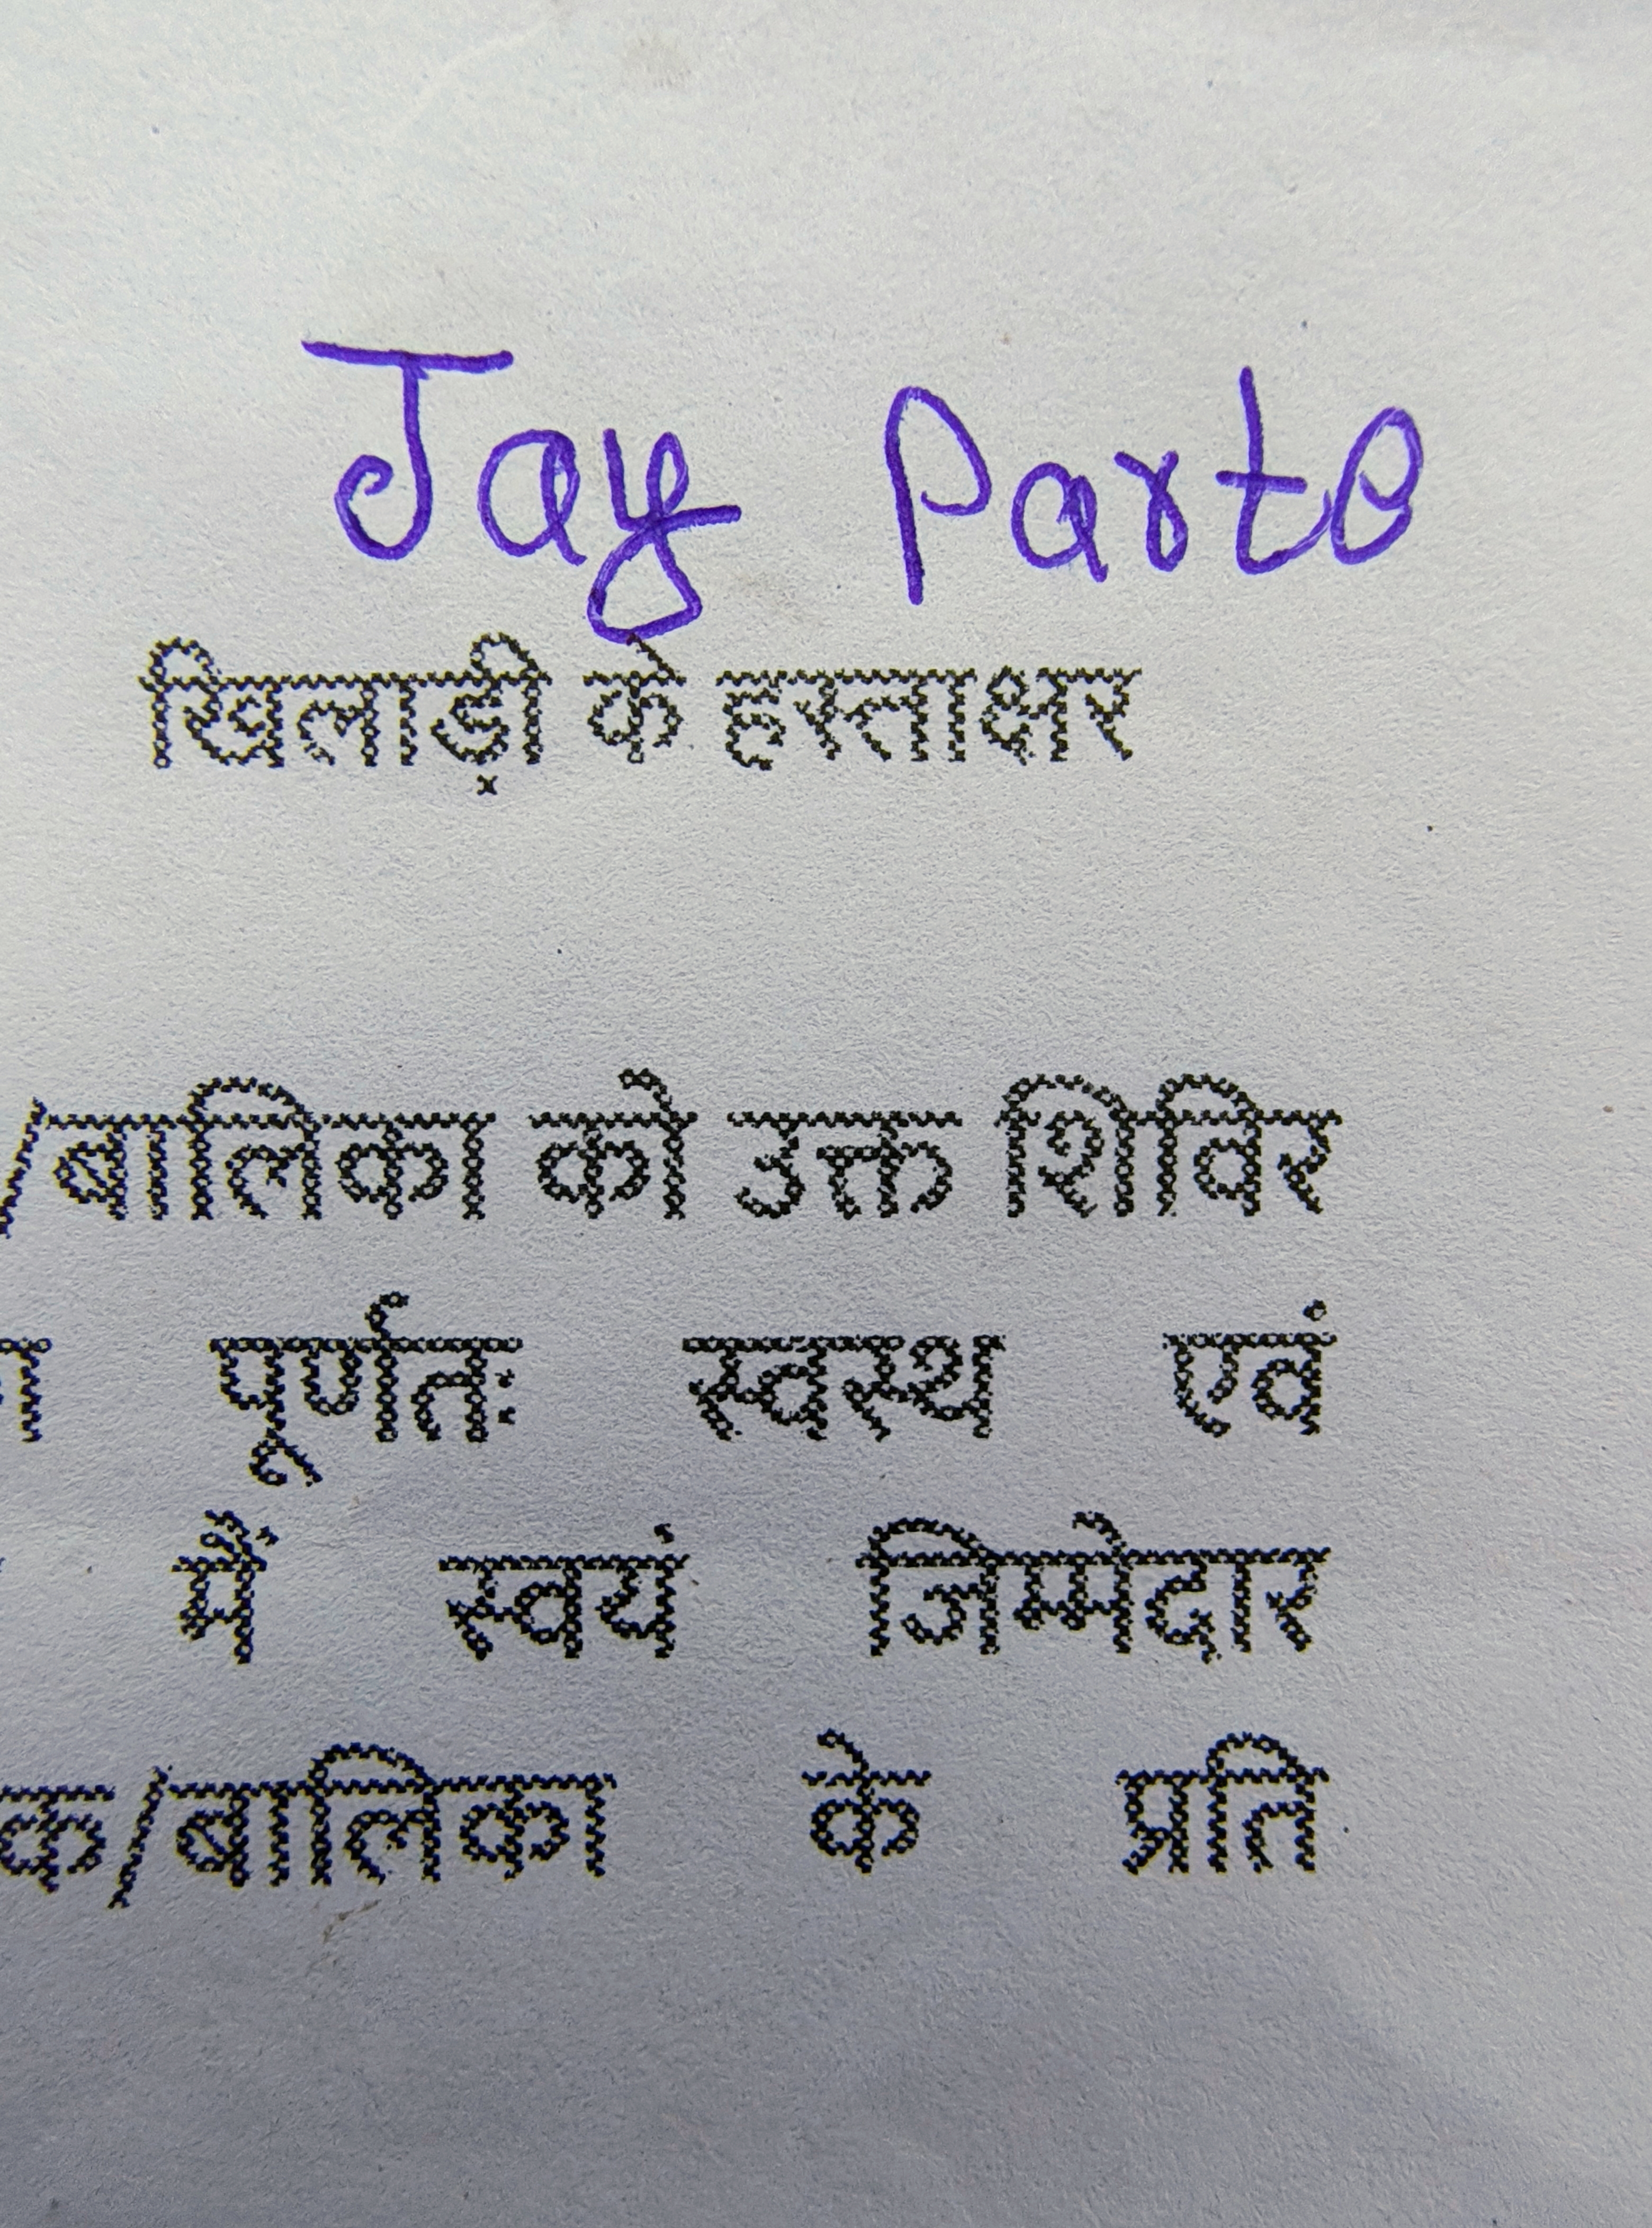 Jay Parte
खिलाड़ी के हस्ताक्षर
/बालिका को उक्त शिविर
पूर्णतः स्वस्थ एवं
में स्वयं जिम्मेदार
क/बालिका के प्रति